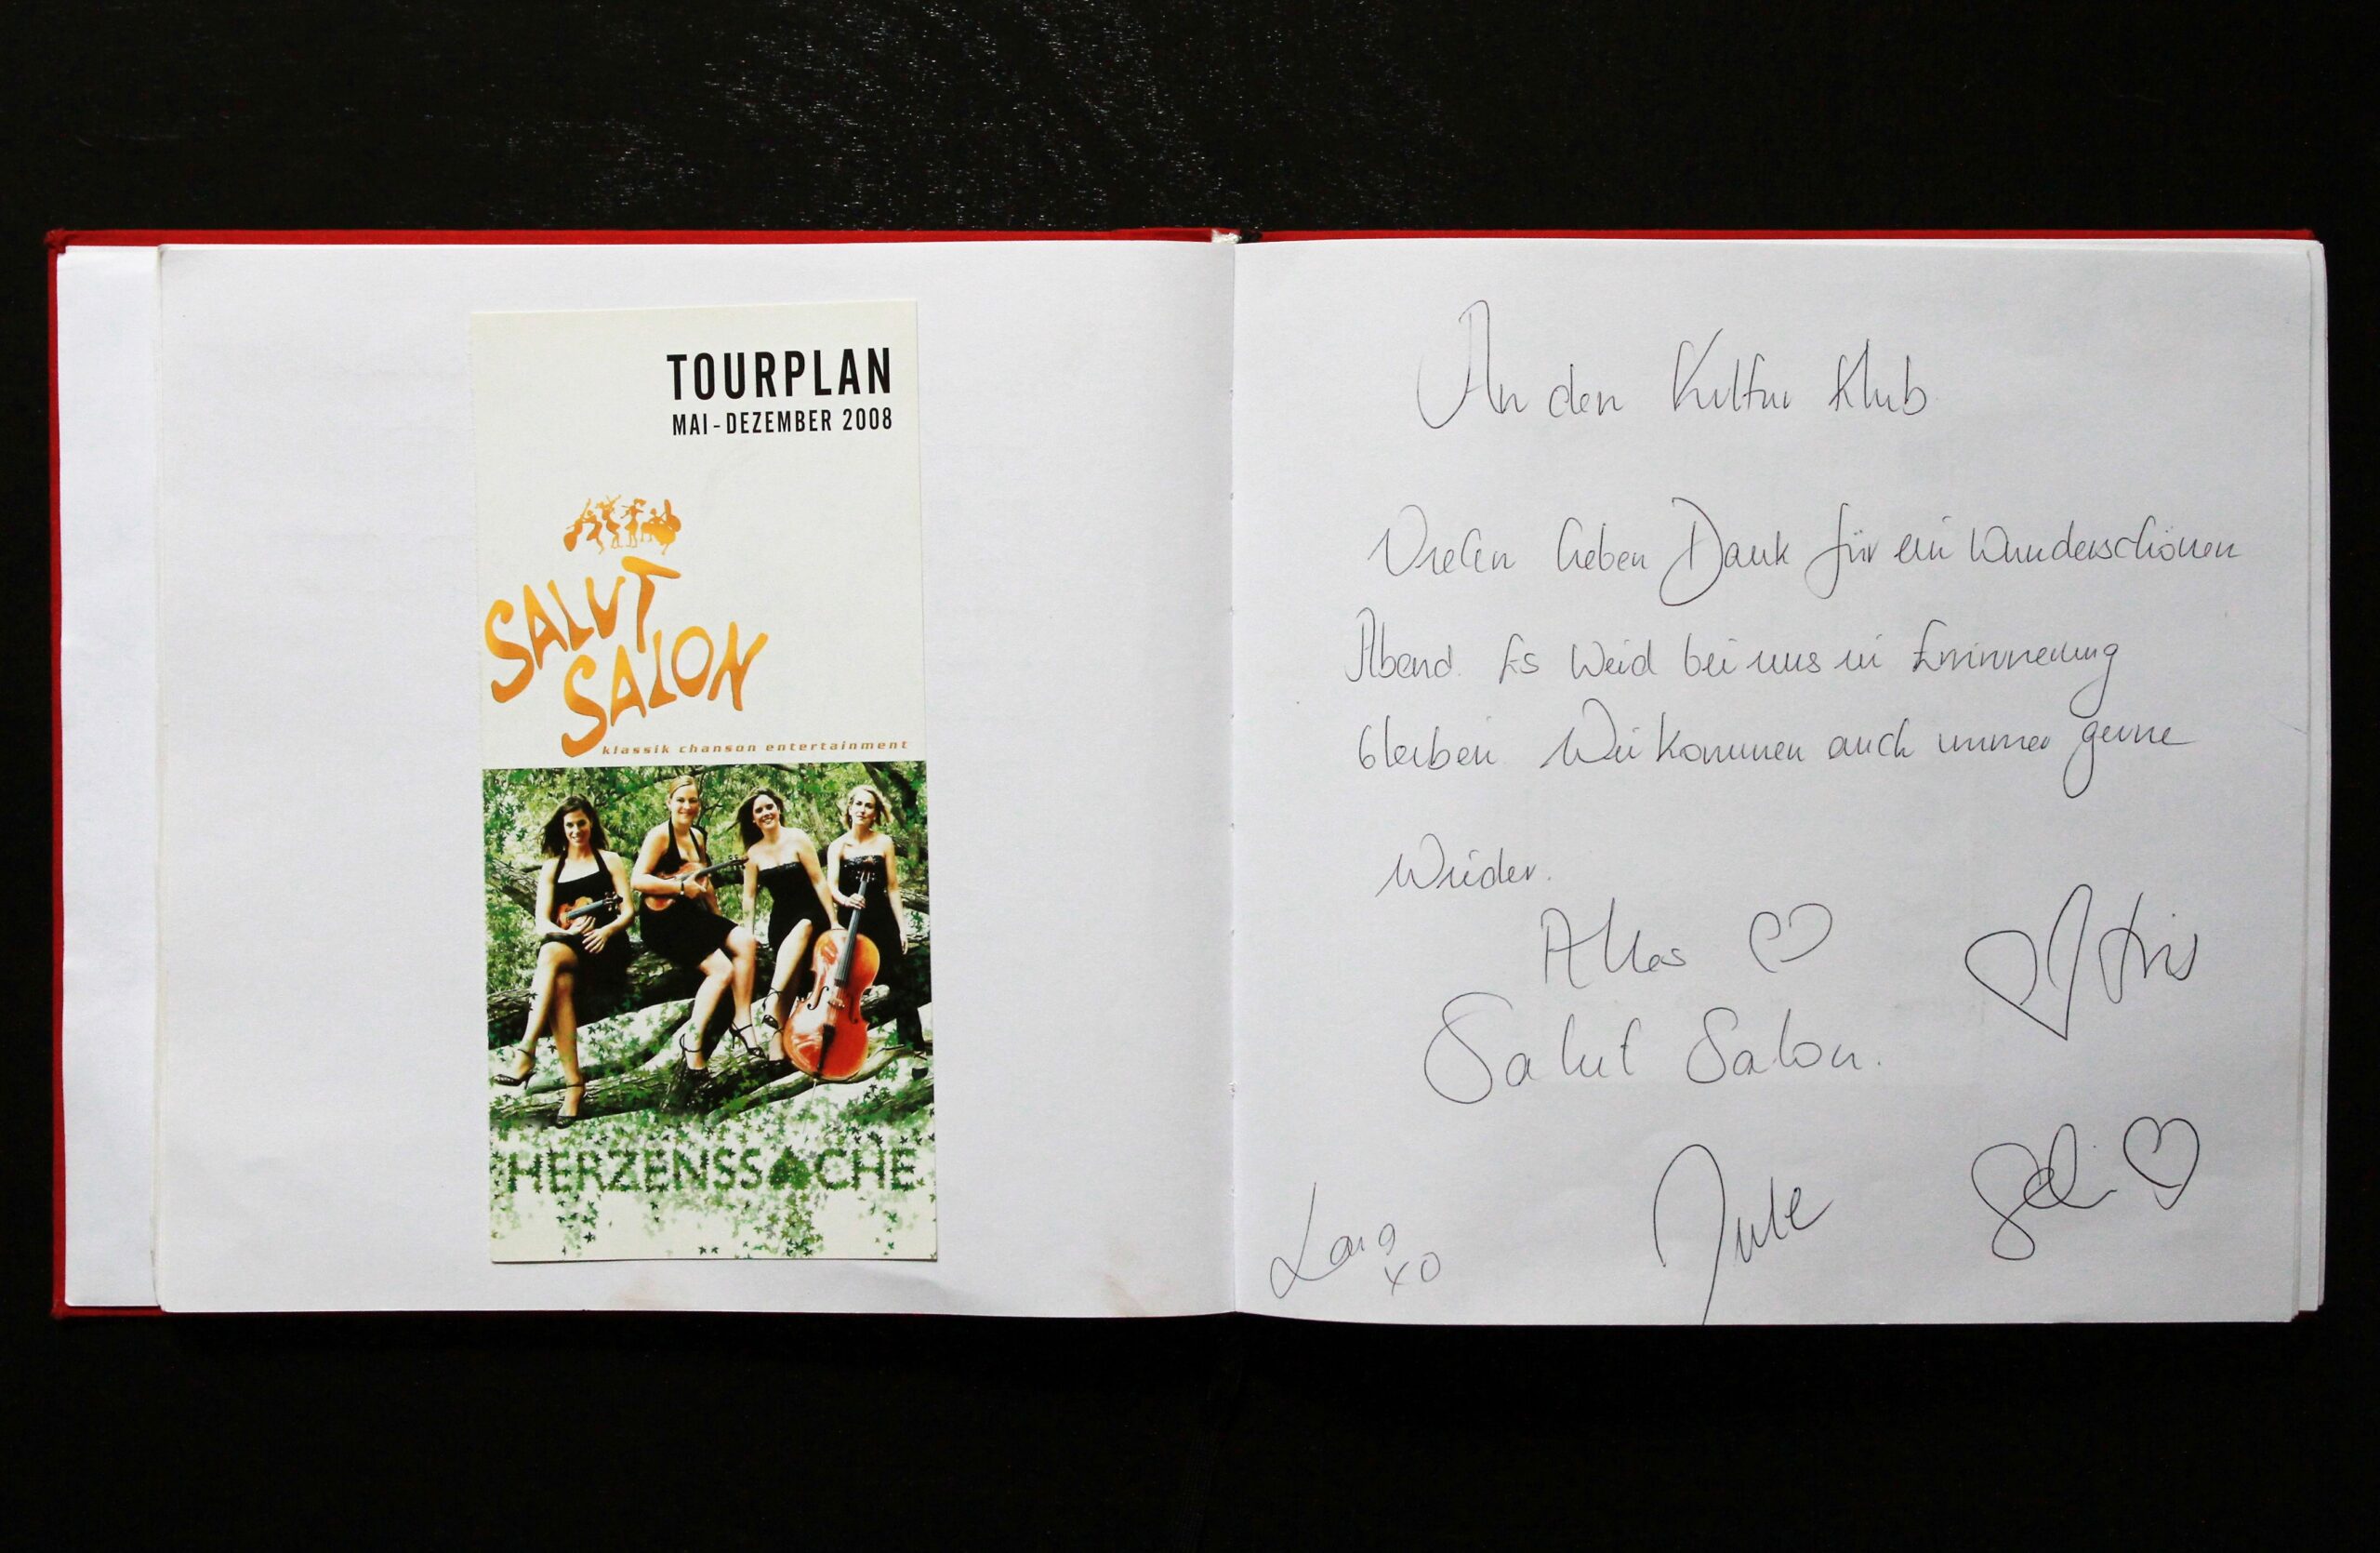 TOURPLAN
MAI - DEZEMBER 2008
SALUT
SALON
klassik chanson entertainment
HERZENSSACHE
An den Kultur Klub
Vielen lieben Dank für ein Wunderschönen
Abend. Es Weid bei uns in Erinnerung
bleiben. Wir kommen auch immer gerne
Wieder.
Alles ♡
♡ Iris
Salut Salon.
Jule
Lara
xo